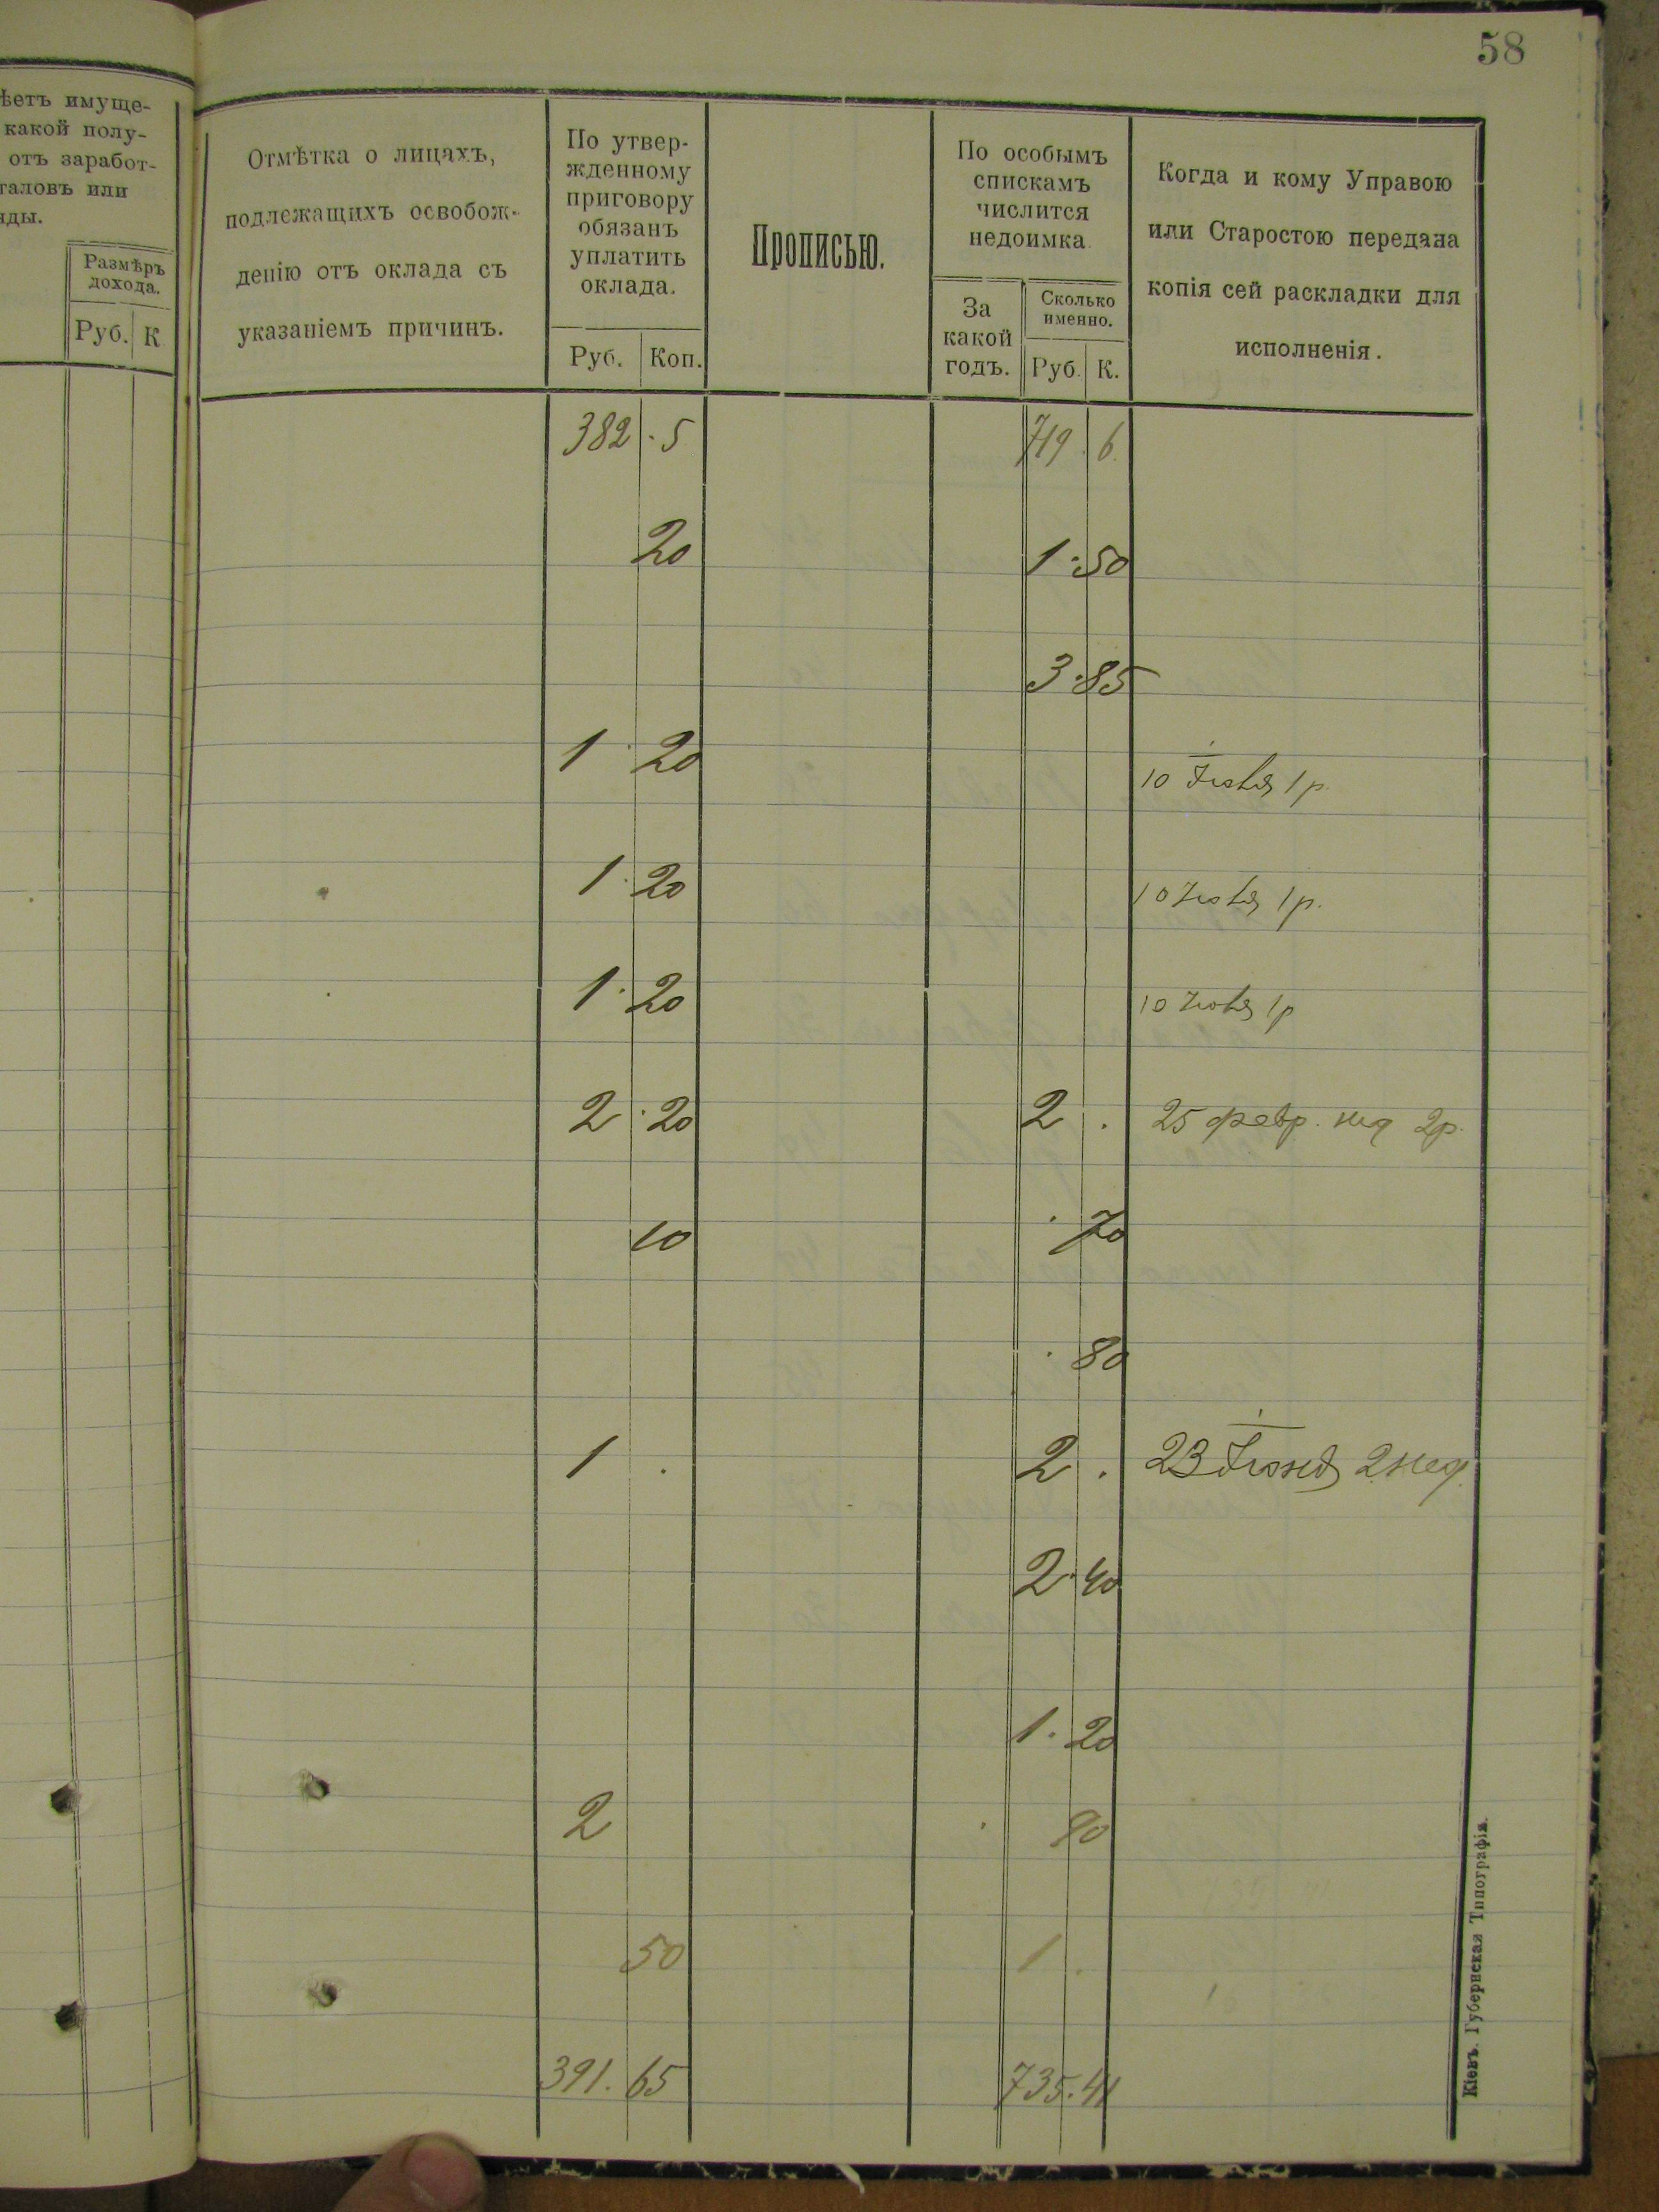 58
ѣетъ имуще-
какой полу-
отъ заработ-
таловъ или
нды.
Размѣръ
дохода.
Руб. К.
Отмѣтка о лицахъ,
подлежащихъ освобож-
денію отъ оклада съ
указаніемъ причинъ.
По утвер-
жденному
приговору
обязанъ
уплатить
оклада.
Руб. Коп.
Прописью.
По особымъ
спискамъ
числится
недоимка
За
какой
годъ.
Сколько
именно.
Руб. К.
Когда и кому Управою
или Старостою передана
копія сей раскладки для
исполненія.
382 5 719 6
20 1 50
3 85
1 20 10 1 р.
1 20 10 1 р.
1 20 10 1 р
2 20 2 . 25 февр. нед 2р.
10 70
80
1 . 2 . 23 2 нед.
2 40
1 20
2
50 1 .
391. 65 735. 41
Кіевъ. Губернская Типографія.